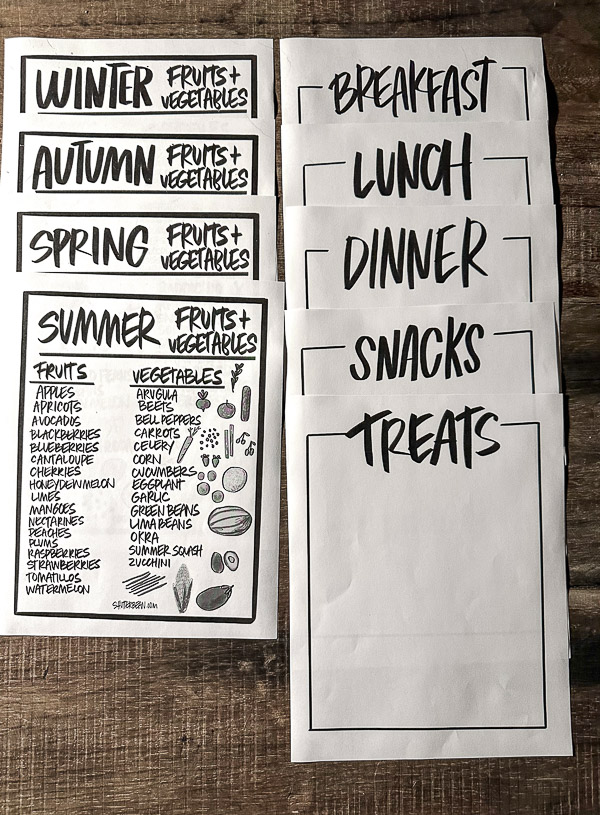 WINTER FRUITS +
VEGETABLES
AUTUMN FRUITS +
VEGETABLES
SPRING FRUITS +
VEGETABLES
SUMMER FRUITS +
VEGETABLES
FRUITS
APPLES
APRICOTS
AVOCADOS
BLACKBERRIES
BLUEBERRIES
CANTALOUPE
CHERRIES
HONEYDEW MELON
LIMES
MANGOES
NECTARINES
PEACHES
PLUMS
RASPBERRIES
STRAWBERRIES
TOMATILLOS
WATERMELON
VEGETABLES
ARUGULA
BEETS
BELL PEPPERS
CARROTS
CELERY
CORN
CUCUMBERS
EGGPLANT
GARLIC
GREEN BEANS
LIMA BEANS
OKRA
SUMMER SQUASH
ZUCCHINI
SHUTTERBEAN.COM
BREAKFAST
LUNCH
DINNER
SNACKS
TREATS